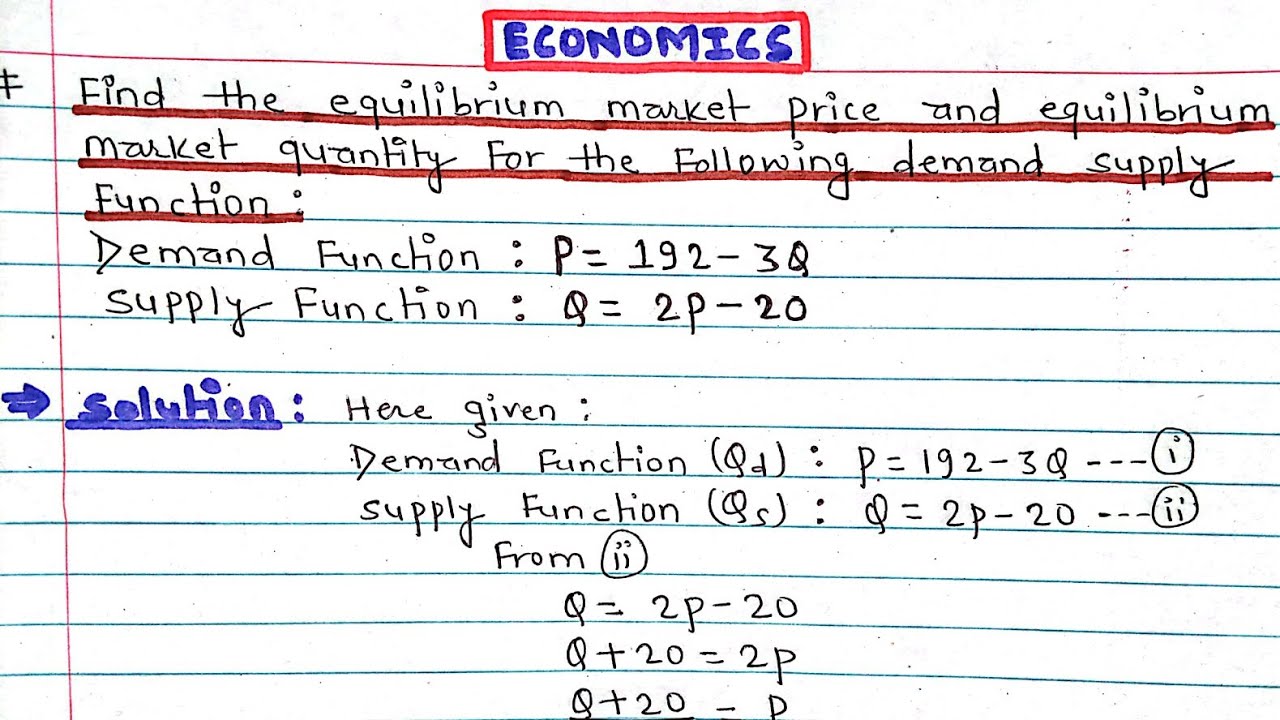 ECONOMICS
Find the equilibrium market price and equilibrium
market quantity For the Following demand supply
Function :
Demand Function : P = 192 - 3Q
supply Function : Q = 2p - 20
⇒ Solution : Here given :
Demand Function (Qd) : p = 192 - 3Q ---- (i)
supply Function (Qs) : Q = 2p - 20 ---- (ii)
From (ii)
Q = 2p - 20
Q + 20 = 2p
Q + 20 = p